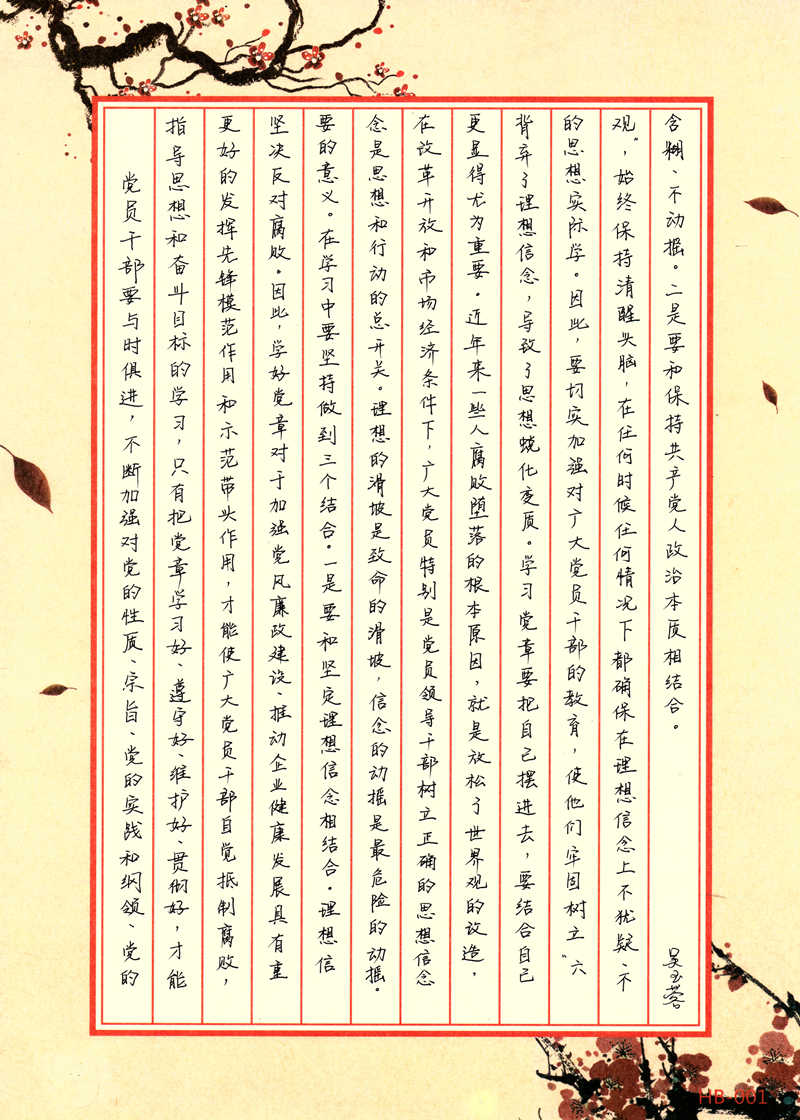 党员干部要与时俱进，不断加强对党的性质、宗旨、党的实战和纲领、党的
指导思想和奋斗目标的学习，只有把党章学习好、遵守好、维护好、贯彻好，才能
更好的发挥先锋模范作用和示范带头作用，才能使广大党员干部自觉抵制腐败，
坚决反对腐败。因此，学好党章对于加强党风廉政建设、推动企业健康发展具有重
要的意义。在学习中要坚持做到三个结合。一是要和坚定理想信念相结合。理想信
念是思想和行动的总开关。理想的滑坡是致命的滑坡，信念的动摇是最危险的动摇。
在改革开放和市场经济条件下，广大党员特别是党员领导干部树立正确的思想信念
更显得尤为重要。近年来一些人腐败堕落的根本原因，就是放松了世界观的改造，
背弃了理想信念，导致了思想蜕化变质。学习党章要把自己摆进去，要结合自己
的思想实际学。因此，要切实加强对广大党员干部的教育，使他们牢固树立“六
观”，始终保持清醒头脑，在任何时候任何情况下都确保在理想信念上不犹疑、不
含糊、不动摇。二是要和保持共产党人政治本质相结合。
吴玉蓉
HB-001